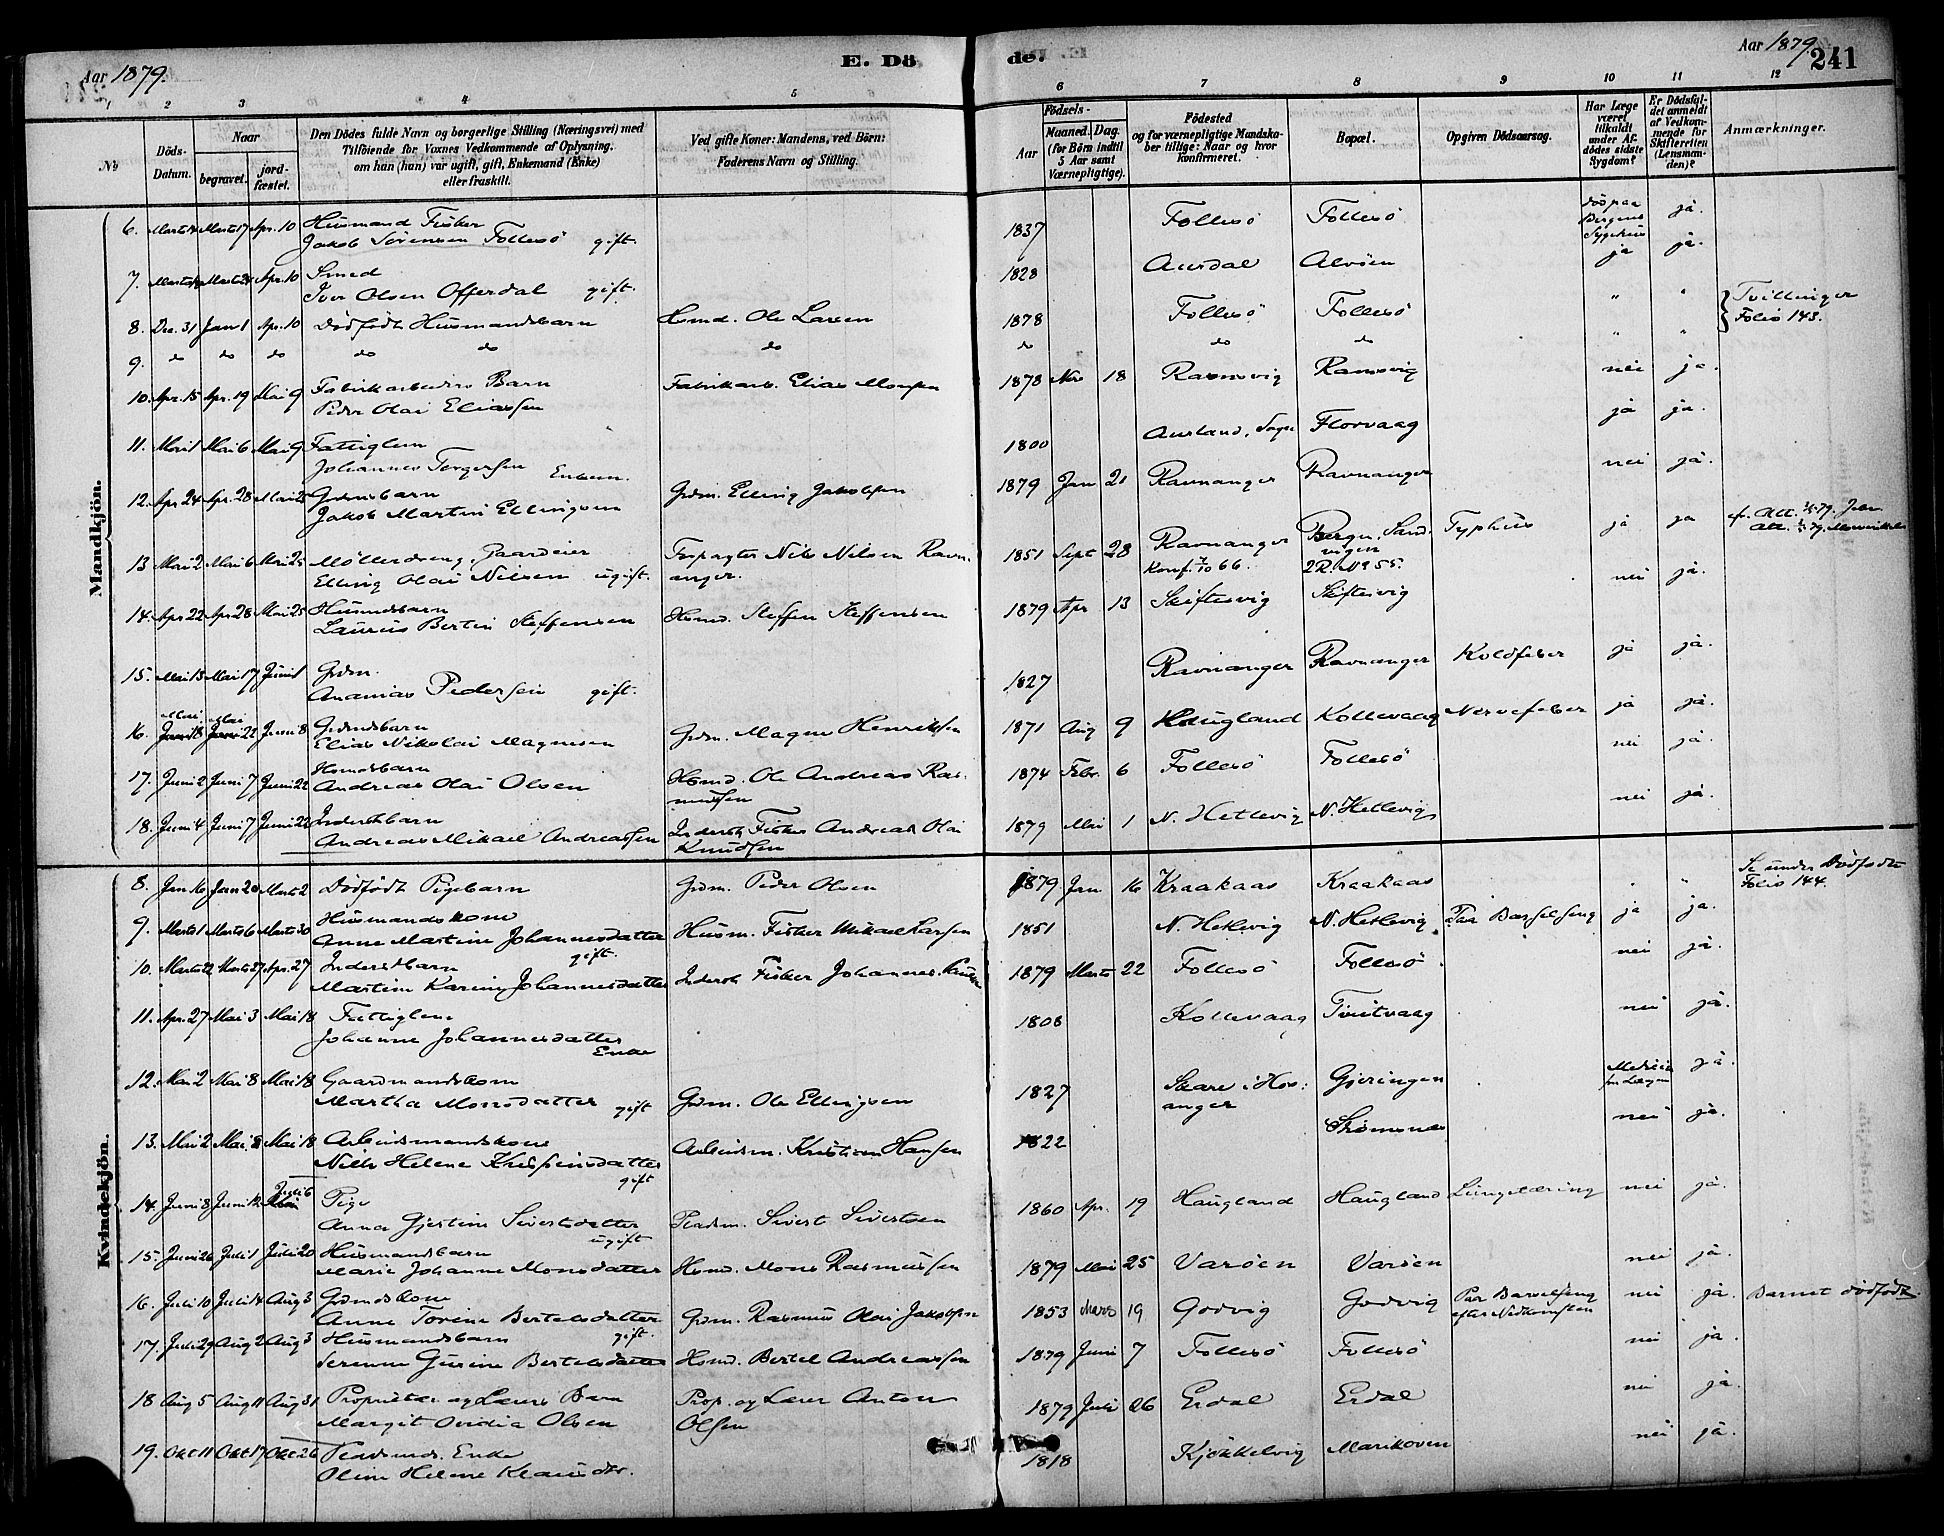 Aar 1879. E. Dö de. Aar 1879. 241
1 2 3 4 5 6 7 8 9 10 11 12
№ Döds-Datum. Naar begravet. jord-fæstet. Den Dödes fulde Navn og borgerlige Stilling (Næringsvei) med Tilföiende for Voxnes Vedkommende af Oplysning, om han (hun) var ugift, gift, Enkemand (Enke) eller fraskilt. Ved gifte Koner: Mandens, ved Börn: Faderens Navn og Stilling. Födsels- Aar Maaned. Dag. (for Börn indtil 5 Aar samt Værnepligtige). Födested og for værnepligtige Mandskaber tillige: Naar og hvor konfirmeret. Bopæl. Opgiven Dödsaarsag. Har Læge været tilkaldt under Afdödes sidste Sygdom? Er Dödsfaldet anmeldt af Vedkommende for Skifteretten (Lensmanden)? Anmærkninger.
Mandkjön.
6. Marts Marts 17 Apr. 10 Husmand Fisker Jakob Sörensen Follesö gift. 1837 Follesö Follesö död paa Bergens Sygehus ja.
7. Marts Marts Apr. 10 Smed Iver Olsen Offerdal gift. 1828 Aurdal Alvöen ja ja.
8. Dec. 31 Jan 1 Apr. 10 Dödfödt Husmandsbarn Hsmd. Ole Larsen 1878 Follesö Follesö " " Tvillinger Folio 143.
9. do do do do do do do do do " "
10. Apr. 15 Apr. 19 Mai 9 Fabrikarbeiders Barn Peder Olai Eliassen Fabrikarb. Elias Monsen 1878 Nov 18 Ramsvig Ramsvig nei ja.
11. Mai 1 Mai 6 Mai 9 Fattiglem Johannes Torgersen Enkem. 1800 Aurland, Sogn Florvaag ja ja.
12. Apr 24 Apr. 28 Mai 25 Grdmsbarn Jakob Martin Ellingsen Grdm. Elling Jakobsen 1879 Jan 21 Ravnanger Ravnanger nei ja.
13 Mai 2 Mai 6 Mai 25 Möllerdreng, Gaardeier Elling Olai Nilsen ugift. Forpagter Nils Nilsen Ravnanger. 1851 Sept 28 Ravnanger Konf. 7/10 66. Bergen, Sandvigen 2 R. No 55. Typhus ja ja
14. Apr 22 Apr 28 Mai 25 Husmdsbarn Laurits Bertin Steffensen Hsmd. Steffen Steffensen 1879 Apr 13 Skiftesvig Skiftesvig nei ja.
15. Mai 13 Mai 17 Juni 1 Grdm. Ananias Pedersen gift. 1827 Ravnanger Ravnanger Koldfeber ja ja.
16. Mai 18 Mai 22 Juni 8 Grdmdsbarn Elias Nikolai Magnesen Grdm. Magne Henriksen 1871 Aug 9 Haugland Kollevaag Nervefeber ja ja.
17. Juni 2 Juni 7 Juni 22 Hsmdsbarn Andreas Olai Olsen Hsmd. Ole Andreas Rasmussen 1874 Febr. 6 Follesö Follesö nei ja.
18. Juni 4 Juni 7 Juni 22 Inderstbarn Andreas Mikael Andreassen Inderst Fisker Andreas Olai Knudsen 1879 Mai 1 N. Hetlevig N. Hetlevig nei ja.
Kvindekjön.
8. Jan 16 Jan 20 Marts 2 Dödfödt Pigebarn Grdm. Peder Olsen 1879 Jan 16 Kraakaas Kraakaas " " Se under Dödfödte Folio 144.
9. Marts 1 Marts 6 Marts 30 Husmandskone Anne Martine Johannesdatter gift. Husm. Fisker Mikael Larsen 1851 N. Hetlevig N. Hetlevig Paa Barselseng ja ja.
10. Marts 22 Marts 27 Apr. 27 Inderstbarn Martine Karine Johannesdatter Inderst Fisker Johannes 1879 Marts 22 Follesö Follesö nei ja.
11. Apr. 27 Mai 3 Mai 18 Fattiglem Johanne Johannesdatter Enke 1808 Kollevaag Tveitvaag nei ja.
12. Mai 2 Mai 8 Mai 18 Gaardmandskone Martha Monsdatter gift Grdm. Ole Ellingsen 1827 Skare i Hosanger Gjeringen Medicin fra Lægen ja.
13. Mai 2 Mai 8 Mai 18 Arbeidsmandskone Nille Helene Krispinsdatter gift Arbeidsm. Kristian Hansen 1822 Strömsnes nei ja.
14. Juni 8 Juni 12 Juli 6 Pige Anna Gjertine Sivertsdatter ugift Pladsm. Sivert Sivertsen 1860 Apr. 19 Haugland Haugland Lungetæring nei ja.
15. Juni 26 Juli 1 Juli 20 Husmandsbarn Marie Johanne Monsdatter Hsmd. Mons Rasmussen 1879 Mai 25 Varöen Varöen nei ja.
16. Juli 10 Juli 14 Aug 3 Grdmdskone Anne Torine Bertelsdatter gift. Grdm. Rasmus Olai Jakobsen 1853 Marts 19 Godvig Godvig Paa Barselseng efter Nedkomsten nei ja. Barnet dödfödt.
17. Juli 29 Aug 2 Aug 3 Husmandsbarn Serine Gurine Bertelsdatter Hsmd. Bertel Andreassen 1879 Juni 7 Follesö Follesö nei ja.
18 Aug 5 Aug 11 Aug 31 Proprietær og Lærers Barn Margit Ovidia Olsen Prop. og Lærer Anton Olsen 1879 Juli 26 Erdal Erdal nei ja.
19. Okt 11 Okt 17 Okt 26 Pladsmds. Enke Oline Helene Klausdtr. 1818 Kjökkelvig Marikoven nei ja.